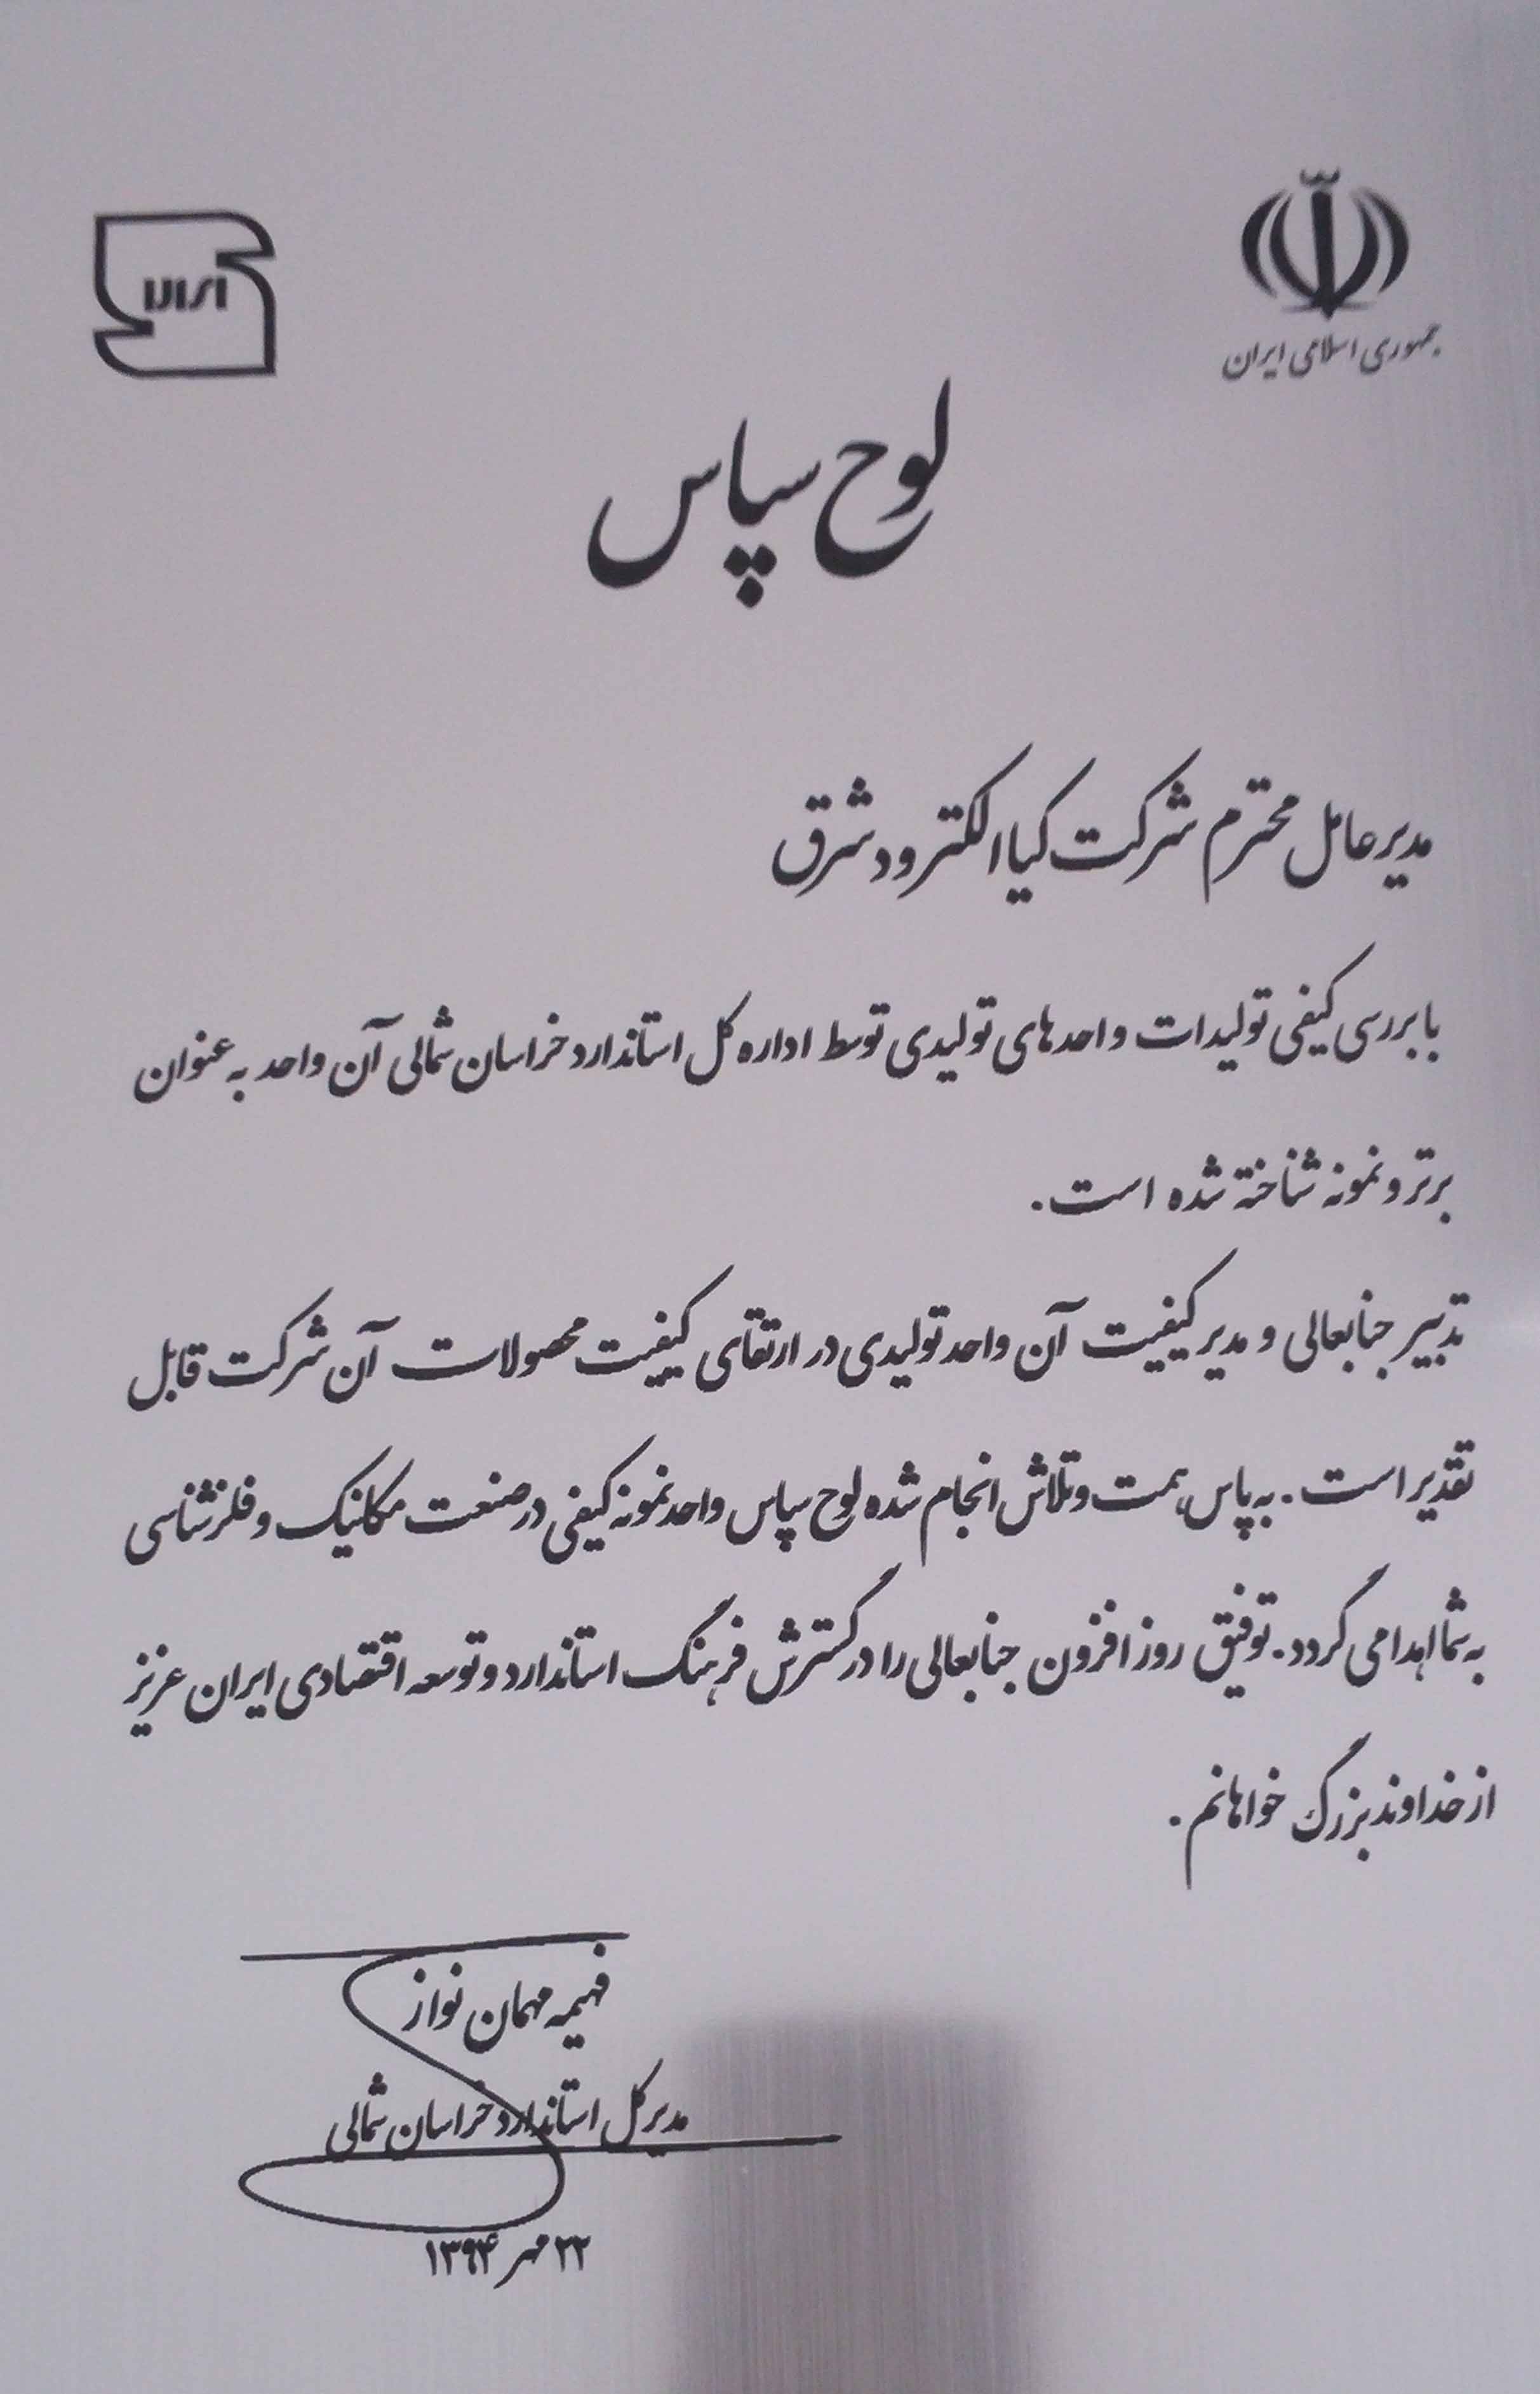 جمهوری اسلامی ایران
لوح سپاس
مدیر عامل محترم شرکت کیا الکترود شرق
با بررسی کیفی تولیدات واحدهای تولیدی توسط اداره کل استاندارد خراسان شمالی آن واحد به عنوان
برتر و نمونه شناخته شده است.
تدبیر جنابعالی و مدیر کیفیت آن واحد تولیدی در ارتقای کیفیت محصولات آن شرکت قابل
تقدیر است. به پاس همت و تلاش انجام شده لوح سپاس واحد نمونه کیفی در صنعت مکانیک و فلزشناسی
به شما اهدا می گردد. توفیق روز افزون جنابعالی را در گسترش فرهنگ استاندارد و توسعه اقتصادی ایران عزیز
از خداوند بزرگ خواهانم.
فهیمه مهمان نواز
مدیر کل استاندارد خراسان شمالی
۲۲ مهر ۱۳۹۴